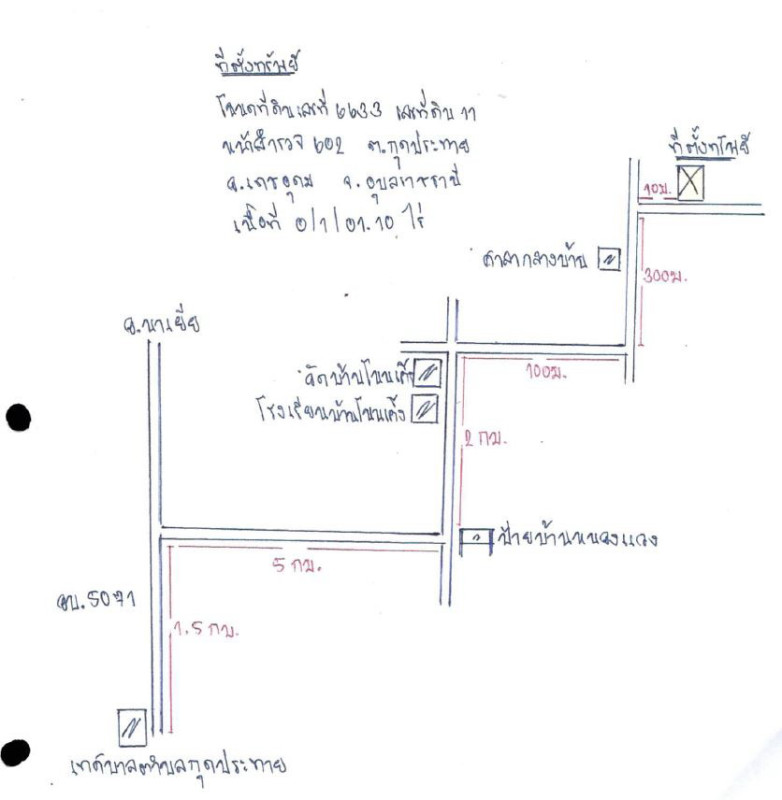 ที่ตั้งทรัพย์
โฉนดที่ดินเลขที่ 6633 เลขที่ดิน 11
หน้าสำรวจ 602 ต.กุดประทาย
อ.เดชอุดม จ.อุบลราชธานี
เนื้อที่ 0/1/01.10 ไร่
ที่ตั้งทรัพย์
10ม.
ศาลากลางบ้าน
300ม.
อ.นาเยีย
วัดบ้านโนนเค็ง
100ม.
โรงเรียนบ้านโนนเค็ง
2 กม.
ป้ายบ้านหนองแวง
5 กม.
อบ.
1.5 กม.
เทศบาลตำบลกุดประทาย